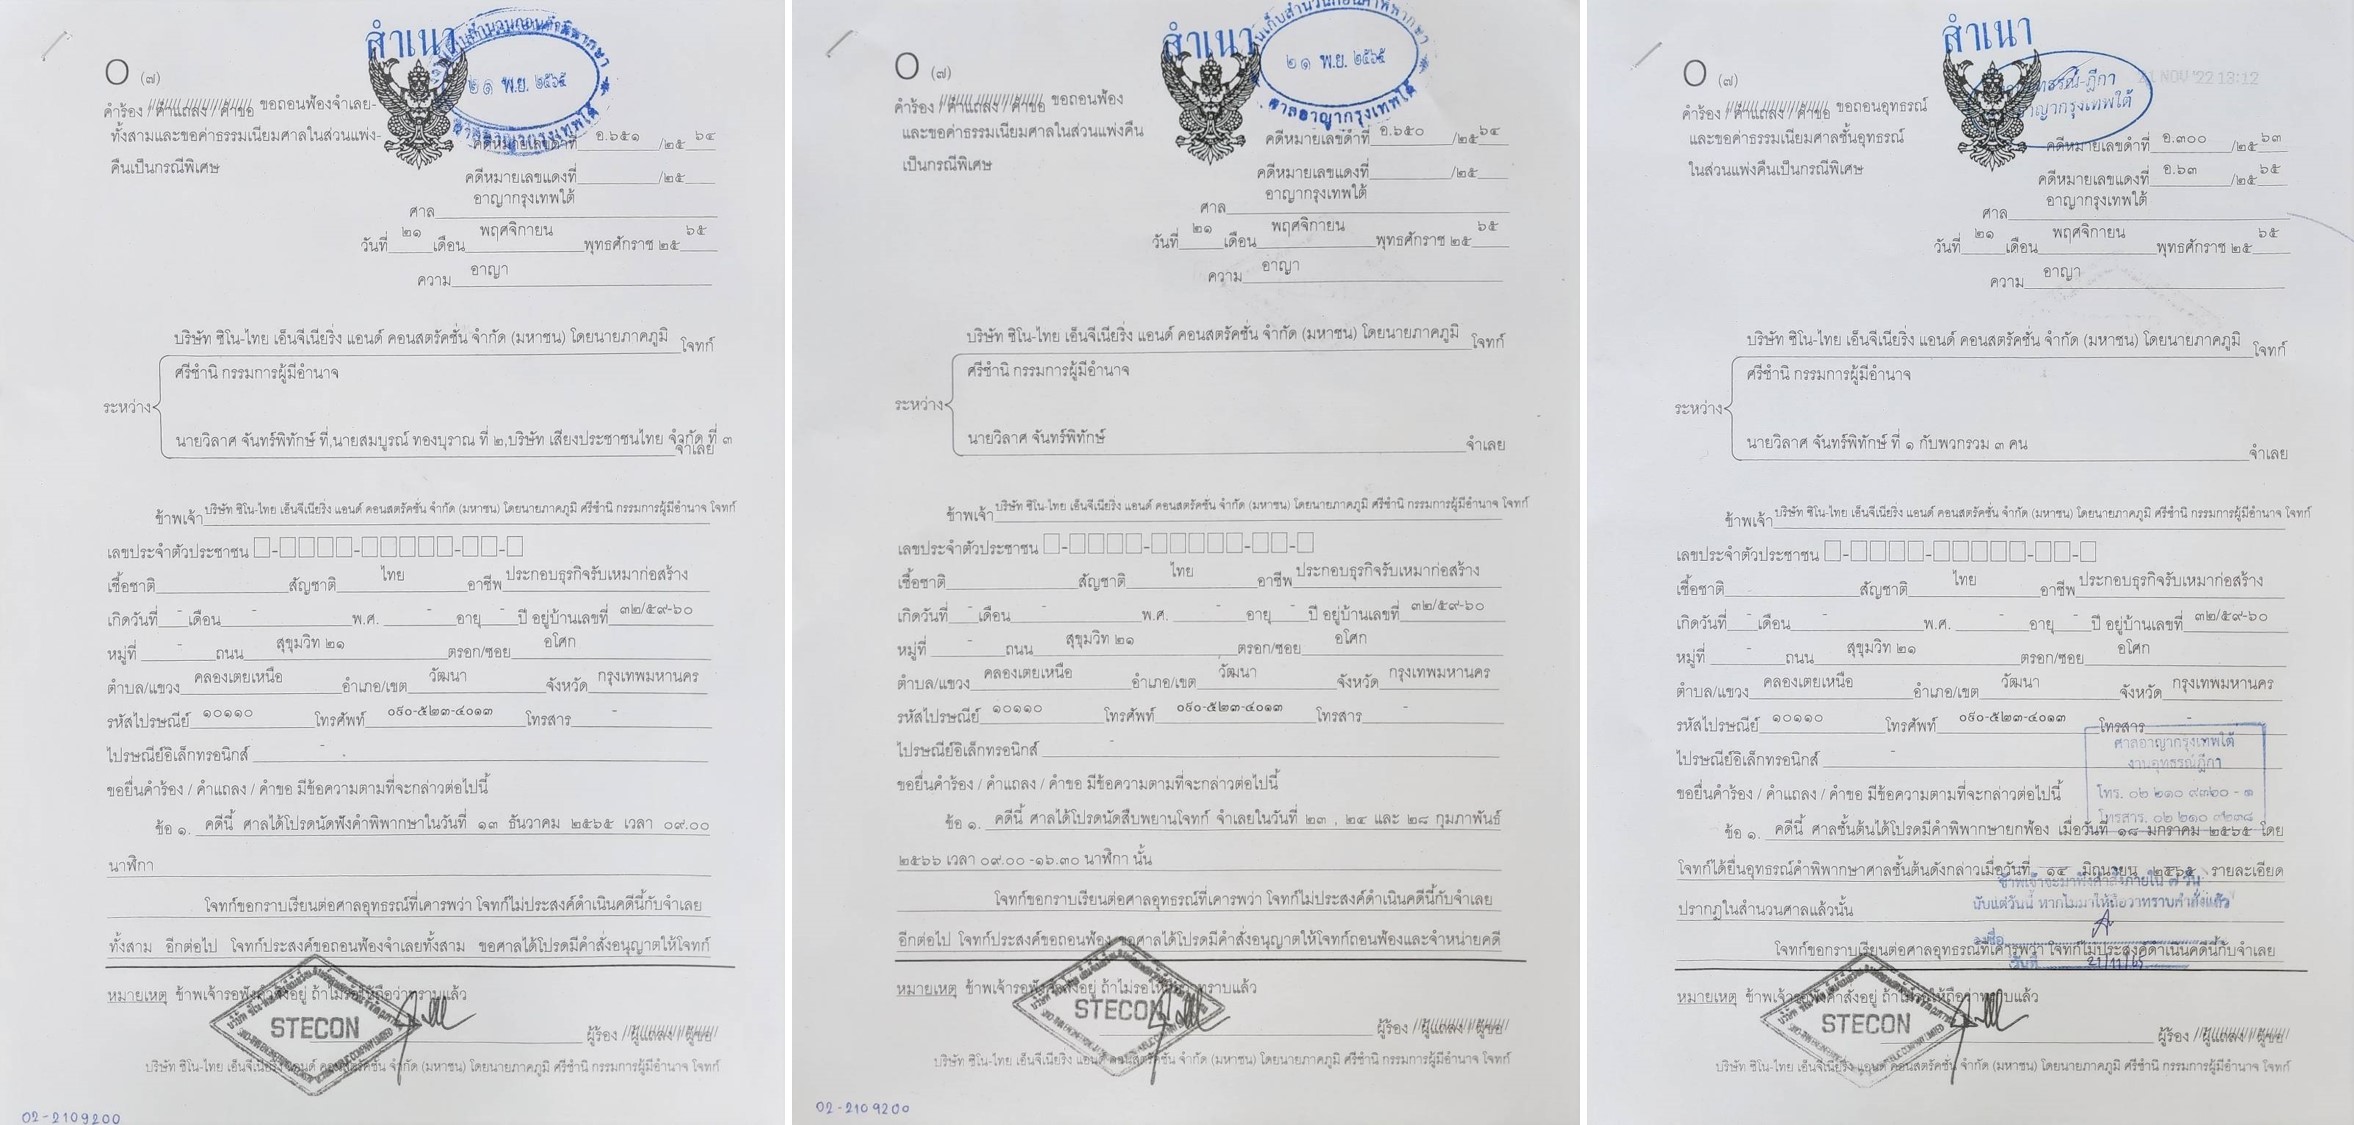 สำเนา
๒๑ พ.ย. ๒๕๖๕
ศาลอาญากรุงเทพใต้
O (๗)
คำร้อง / คำแถลง / คำขอ ขอถอนฟ้องจำเลย-
ทั้งสามและขอค่าธรรมเนียมศาลในส่วนแพ่ง-
คืนเป็นกรณีพิเศษ
คดีหมายเลขดำที่ อ.๖๕๑ /๒๕ ๖๔
คดีหมายเลขแดงที่ /๒๕
ศาล อาญากรุงเทพใต้
วันที่ ๒๑ เดือน พฤศจิกายน พุทธศักราช ๒๕ ๖๕
ความ อาญา
บริษัท ซิโน-ไทย เอ็นจีเนียริ่ง แอนด์ คอนสตรัคชั่น จำกัด (มหาชน) โดยนายภาคภูมิ โจทก์
ศรีชำนิ กรรมการผู้มีอำนาจ
ระหว่าง
นายวิลาศ จันทร์พิทักษ์ ที่,นายสมบูรณ์ ทองบุราณ ที่ ๒,บริษัท เสียงประชาชนไทย จำกัด ที่ ๓
จำเลย
ข้าพเจ้า บริษัท ซิโน-ไทย เอ็นจีเนียริ่ง แอนด์ คอนสตรัคชั่น จำกัด (มหาชน) โดยนายภาคภูมิ ศรีชำนิ กรรมการผู้มีอำนาจ โจทก์
เลขประจำตัวประชาชน
เชื้อชาติ สัญชาติ ไทย อาชีพ ประกอบธุรกิจรับเหมาก่อสร้าง
เกิดวันที่ - เดือน - พ.ศ. - อายุ - ปี อยู่บ้านเลขที่ ๓๒/๕๙-๖๐
หมู่ที่ - ถนน สุขุมวิท ๒๑ ตรอก/ซอย อโศก
ตำบล/แขวง คลองเตยเหนือ อำเภอ/เขต วัฒนา จังหวัด กรุงเทพมหานคร
รหัสไปรษณีย์ ๑๐๑๑๐ โทรศัพท์ ๐๙๐-๕๒๓-๔๐๑๓ โทรสาร -
ไปรษณีย์อิเล็กทรอนิกส์ -
ขอยื่นคำร้อง / คำแถลง / คำขอ มีข้อความตามที่จะกล่าวต่อไปนี้
ข้อ ๑. คดีนี้ ศาลได้โปรดนัดฟังคำพิพากษาในวันที่ ๑๓ ธันวาคม ๒๕๖๕ เวลา ๐๙.๐๐
นาฬิกา
โจทก์ขอกราบเรียนต่อศาลอุทธรณ์ที่เคารพว่า โจทก์ไม่ประสงค์ดำเนินคดีนี้กับจำเลย
ทั้งสาม อีกต่อไป โจทก์ประสงค์ขอถอนฟ้องจำเลยทั้งสาม ขอศาลได้โปรดมีคำสั่งอนุญาตให้โจทก์
หมายเหตุ ข้าพเจ้ารอฟังคำสั่งอยู่ ถ้าไม่รอให้ถือว่าทราบแล้ว
STECON
ผู้ร้อง / ผู้แถลง / ผู้ขอ
บริษัท ซิโน-ไทย เอ็นจีเนียริ่ง แอนด์ คอนสตรัคชั่น จำกัด (มหาชน) โดยนายภาคภูมิ ศรีชำนิ กรรมการผู้มีอำนาจ โจทก์
02-2109200
สำเนา
๒๑ พ.ย. ๒๕๖๕
ศาลอาญากรุงเทพใต้
O (๗)
คำร้อง / คำแถลง / คำขอ ขอถอนฟ้อง
และขอค่าธรรมเนียมศาลในส่วนแพ่งคืน
เป็นกรณีพิเศษ
คดีหมายเลขดำที่ อ.๖๕๐ /๒๕ ๖๔
คดีหมายเลขแดงที่ /๒๕
ศาล อาญากรุงเทพใต้
วันที่ ๒๑ เดือน พฤศจิกายน พุทธศักราช ๒๕ ๖๕
ความ อาญา
บริษัท ซิโน-ไทย เอ็นจีเนียริ่ง แอนด์ คอนสตรัคชั่น จำกัด (มหาชน) โดยนายภาคภูมิ โจทก์
ศรีชำนิ กรรมการผู้มีอำนาจ
ระหว่าง
นายวิลาศ จันทร์พิทักษ์ จำเลย
ข้าพเจ้า บริษัท ซิโน-ไทย เอ็นจีเนียริ่ง แอนด์ คอนสตรัคชั่น จำกัด (มหาชน) โดยนายภาคภูมิ ศรีชำนิ กรรมการผู้มีอำนาจ โจทก์
เลขประจำตัวประชาชน
เชื้อชาติ สัญชาติ ไทย อาชีพ ประกอบธุรกิจรับเหมาก่อสร้าง
เกิดวันที่ - เดือน - พ.ศ. - อายุ - ปี อยู่บ้านเลขที่ ๓๒/๕๙-๖๐
หมู่ที่ - ถนน สุขุมวิท ๒๑ ตรอก/ซอย อโศก
ตำบล/แขวง คลองเตยเหนือ อำเภอ/เขต วัฒนา จังหวัด กรุงเทพมหานคร
รหัสไปรษณีย์ ๑๐๑๑๐ โทรศัพท์ ๐๙๐-๕๒๓-๔๐๑๓ โทรสาร -
ไปรษณีย์อิเล็กทรอนิกส์ -
ขอยื่นคำร้อง / คำแถลง / คำขอ มีข้อความตามที่จะกล่าวต่อไปนี้
ข้อ ๑. คดีนี้ ศาลได้โปรดนัดสืบพยานโจทก์ จำเลยในวันที่ ๒๓ , ๒๔ และ ๒๘ กุมภาพันธ์
๒๕๖๖ เวลา ๐๙.๐๐ -๑๖.๓๐ นาฬิกา นั้น
โจทก์ขอกราบเรียนต่อศาลอุทธรณ์ที่เคารพว่า โจทก์ไม่ประสงค์ดำเนินคดีนี้กับจำเลย
อีกต่อไป โจทก์ประสงค์ขอถอนฟ้อง ขอศาลได้โปรดมีคำสั่งอนุญาตให้โจทก์ถอนฟ้องและจำหน่ายคดี
หมายเหตุ ข้าพเจ้ารอฟังคำสั่งอยู่ ถ้าไม่รอให้ถือว่าทราบแล้ว
STECON
ผู้ร้อง / ผู้แถลง / ผู้ขอ
บริษัท ซิโน-ไทย เอ็นจีเนียริ่ง แอนด์ คอนสตรัคชั่น จำกัด (มหาชน) โดยนายภาคภูมิ ศรีชำนิ กรรมการผู้มีอำนาจ โจทก์
02-2109200
สำเนา
NOV '22 13:12
O (๗)
คำร้อง / คำแถลง / คำขอ ขอถอนอุทธรณ์
และขอค่าธรรมเนียมศาลชั้นอุทธรณ์
ในส่วนแพ่งคืนเป็นกรณีพิเศษ
คดีหมายเลขดำที่ อ.๓๐๐ /๒๕ ๖๓
คดีหมายเลขแดงที่ อ.๖๓ /๒๕ ๖๕
ศาล อาญากรุงเทพใต้
วันที่ ๒๑ เดือน พฤศจิกายน พุทธศักราช ๒๕ ๖๕
ความ อาญา
บริษัท ซิโน-ไทย เอ็นจีเนียริ่ง แอนด์ คอนสตรัคชั่น จำกัด (มหาชน) โดยนายภาคภูมิ โจทก์
ศรีชำนิ กรรมการผู้มีอำนาจ
ระหว่าง
นายวิลาศ จันทร์พิทักษ์ ที่ ๑ กับพวกรวม ๓ คน จำเลย
ข้าพเจ้า บริษัท ซิโน-ไทย เอ็นจีเนียริ่ง แอนด์ คอนสตรัคชั่น จำกัด (มหาชน) โดยนายภาคภูมิ ศรีชำนิ กรรมการผู้มีอำนาจ โจทก์
เลขประจำตัวประชาชน
เชื้อชาติ สัญชาติ ไทย อาชีพ ประกอบธุรกิจรับเหมาก่อสร้าง
เกิดวันที่ - เดือน - พ.ศ. - อายุ - ปี อยู่บ้านเลขที่ ๓๒/๕๙-๖๐
หมู่ที่ - ถนน สุขุมวิท ๒๑ ตรอก/ซอย อโศก
ตำบล/แขวง คลองเตยเหนือ อำเภอ/เขต วัฒนา จังหวัด กรุงเทพมหานคร
รหัสไปรษณีย์ ๑๐๑๑๐ โทรศัพท์ ๐๙๐-๕๒๓-๔๐๑๓ โทรสาร -
ไปรษณีย์อิเล็กทรอนิกส์ -
ศาลอาญากรุงเทพใต้
งานอุทธรณ์ฎีกา
โทร. ๐๒ ๒๑๐ ๙๓๖๐ - ๑
โทรสาร. ๐๒ ๒๑๐ ๙๒๓๘
ขอยื่นคำร้อง / คำแถลง / คำขอ มีข้อความตามที่จะกล่าวต่อไปนี้
ข้อ ๑. คดีนี้ ศาลชั้นต้นได้โปรดมีคำพิพากษายกฟ้อง เมื่อวันที่ ๑๘ มกราคม ๒๕๖๕ โดย
โจทก์ได้ยื่นอุทธรณ์คำพิพากษาศาลชั้นต้นดังกล่าวเมื่อวันที่ ๑๔ มิถุนายน ๒๕๖๕ รายละเอียด
ปรากฏในสำนวนศาลแล้วนั้น
ข้าพเจ้าจะมาฟังคำสั่งภายใน ๗ วัน
นับแต่วันนี้ หากไม่มาให้ถือว่าทราบคำสั่งแล้ว
ลงชื่อ
วันที่ 21/11/65
โจทก์ขอกราบเรียนต่อศาลอุทธรณ์ที่เคารพว่า โจทก์ไม่ประสงค์ดำเนินคดีนี้กับจำเลย
หมายเหตุ ข้าพเจ้ารอฟังคำสั่งอยู่ ถ้าไม่รอให้ถือว่าทราบแล้ว
STECON
ผู้ร้อง / ผู้แถลง / ผู้ขอ
บริษัท ซิโน-ไทย เอ็นจีเนียริ่ง แอนด์ คอนสตรัคชั่น จำกัด (มหาชน) โดยนายภาคภูมิ ศรีชำนิ กรรมการผู้มีอำนาจ โจทก์